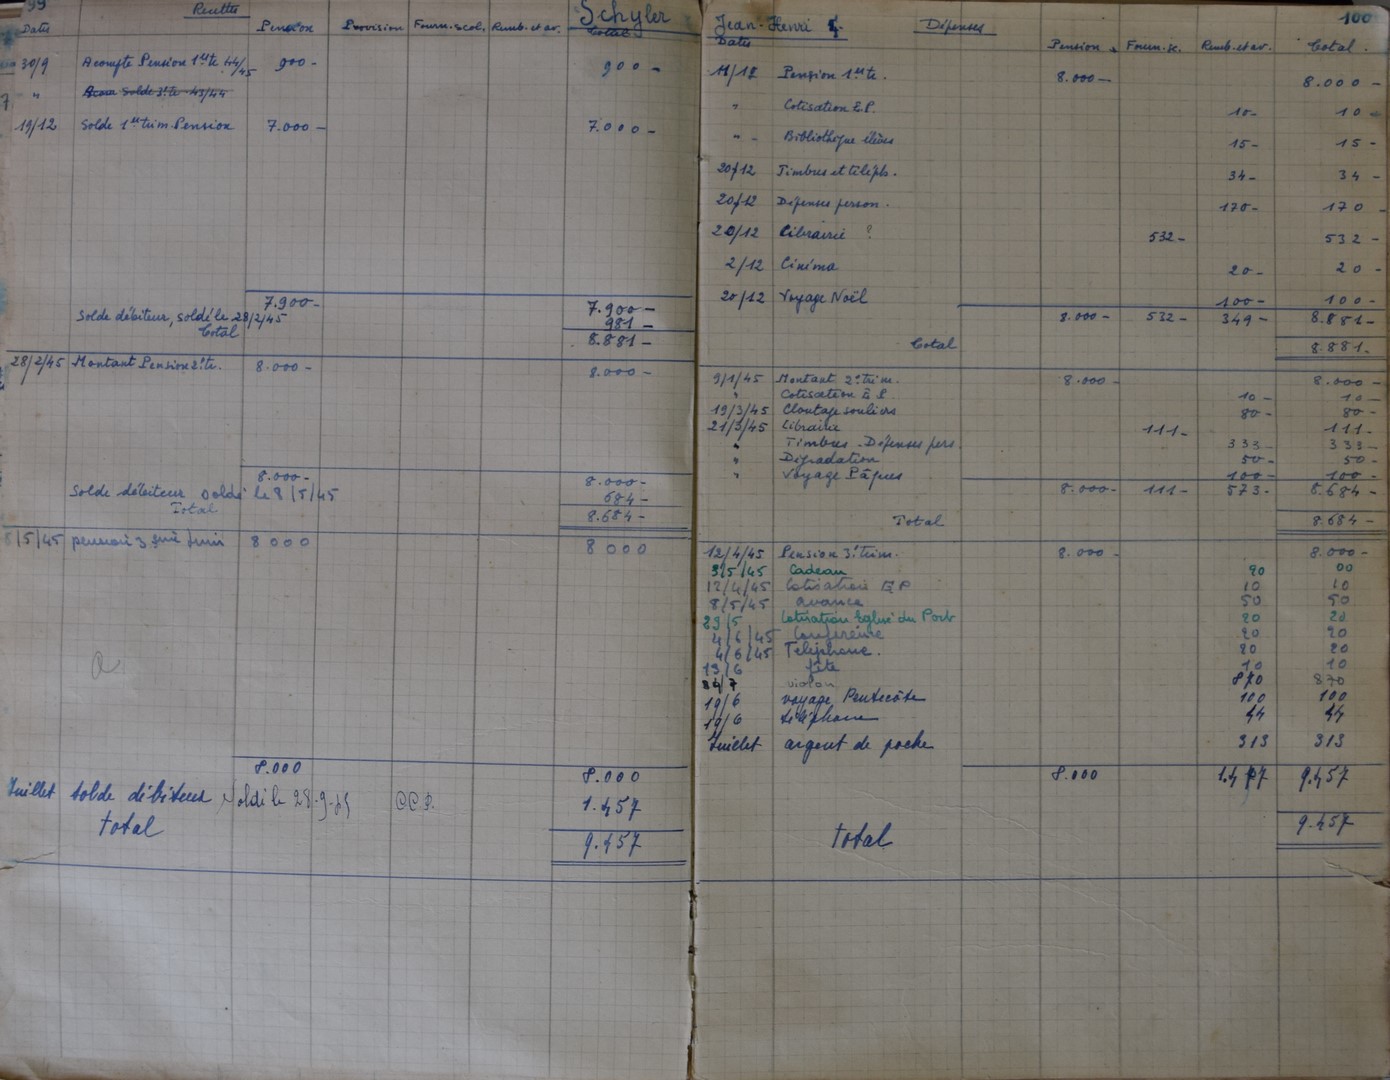 99 Recettes Schyler
Dates Pension Provision Fourn. scol. Remb. et av. Total
30/9 Acompte Pension 1er te. 44/45 900 - 900 -
" Solde 3e te. 43/44
19/12 Solde 1er trim. Pension 7.000 - 7.000 -
7.900 - 7.900 -
Solde débiteur, soldé le 28/2/45 981 -
Total 8.881 -
28/2/45 Montant Pension 2e te. 8.000 - 8.000 -
8.000 - 8.000 -
Solde débiteur soldé le 8/5/45 684 -
Total 8.684 -
8/5/45 8000 8000
8.000 8.000
Juillet solde débiteur Soldé le 28-9-45 CCP. 1.457
total 9.457
Jean-Henri Dépenses 100
Dates Pension Fourn. sc. Remb. et av. Total.
11/12 Pension 1er te. 8.000 - 8.000 -
" Cotisation E.P. 10 - 10 -
" - Bibliothèque élèves 15 - 15 -
20/12 Timbres et téléph. 34 - 34 -
20/12 Dépenses person. 170 - 170 -
20/12 Librairie ? 532 - 532 -
2/12 Cinéma 20 - 20 -
20/12 Voyage Noël 100 - 100 -
8.000 - 532 - 349 - 8.881 -
Total 8.881 -
9/1/45 Montant 2e trim. 8.000 - 8.000 -
" Cotisation E P. 10 - 10 -
19/3/45 Cloutage souliers 80 - 80 -
21/3/45 Librairie 111 - 111 -
" Timbres - Dépenses pers. 333 - 333 -
" Dégradation 50 - 50 -
" Voyage Pâques 100 - 100 -
8.000 - 111 - 573 - 8.684 -
Total 8.684 -
12/4/45 Pension 3e trim. 8.000 - 8.000 -
3/5/45 Cadeau 20
12/4/45 Cotisation E P 10 10
8/5/45 avance 50 50
29/5 Cotisation Eglise du Port 20 20
4/6/45 Conférence 20 20
4/6/45 Téléphone. 20 20
13/6 fête 10 10
violon 870 870
19/6 voyage Pentecôte 100 100
19/6 téléphone 44 44
Juillet argent de poche 313 313
8.000 9.457
total 9.457